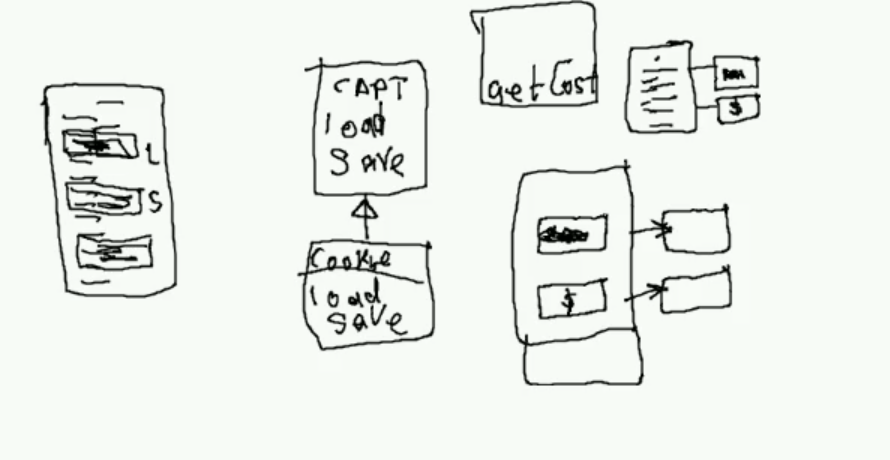 L
S
CAPT
load
Save
Cookie
load
save
getCost
$
$